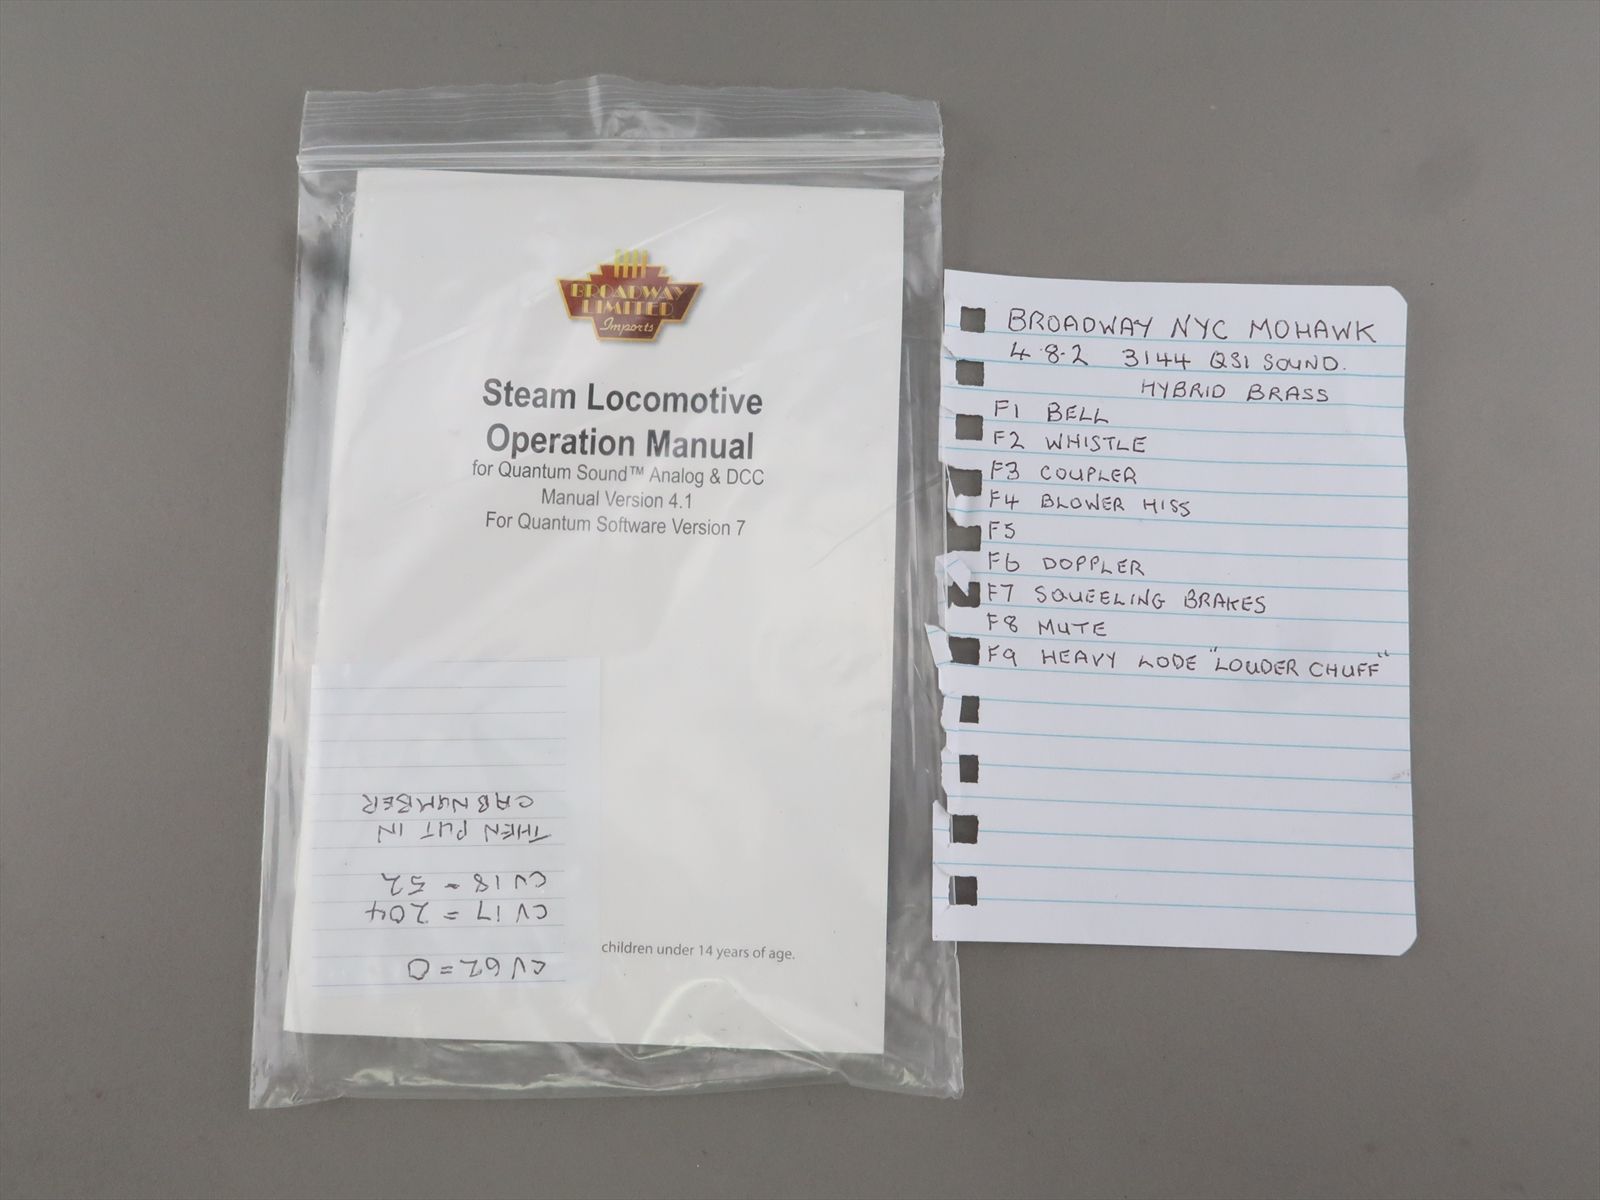 BROADWAY
LIMITED
Imports
Steam Locomotive
Operation Manual
for Quantum Sound™ Analog & DCC
Manual Version 4.1
For Quantum Software Version 7
children under 14 years of age.
CV62=0
CV17=204
CV18-52
THEN PUT IN
CAB NUMBER
BROADWAY NYC MOHAWK
4-8-2 3144 QSI SOUND.
HYBRID BRASS
F1 BELL
F2 WHISTLE
F3 COUPLER
F4 BLOWER HISS
F5
F6 DOPPLER
F7 SQUEELING BRAKES
F8 MUTE
F9 HEAVY LODE "LOUDER CHUFF"